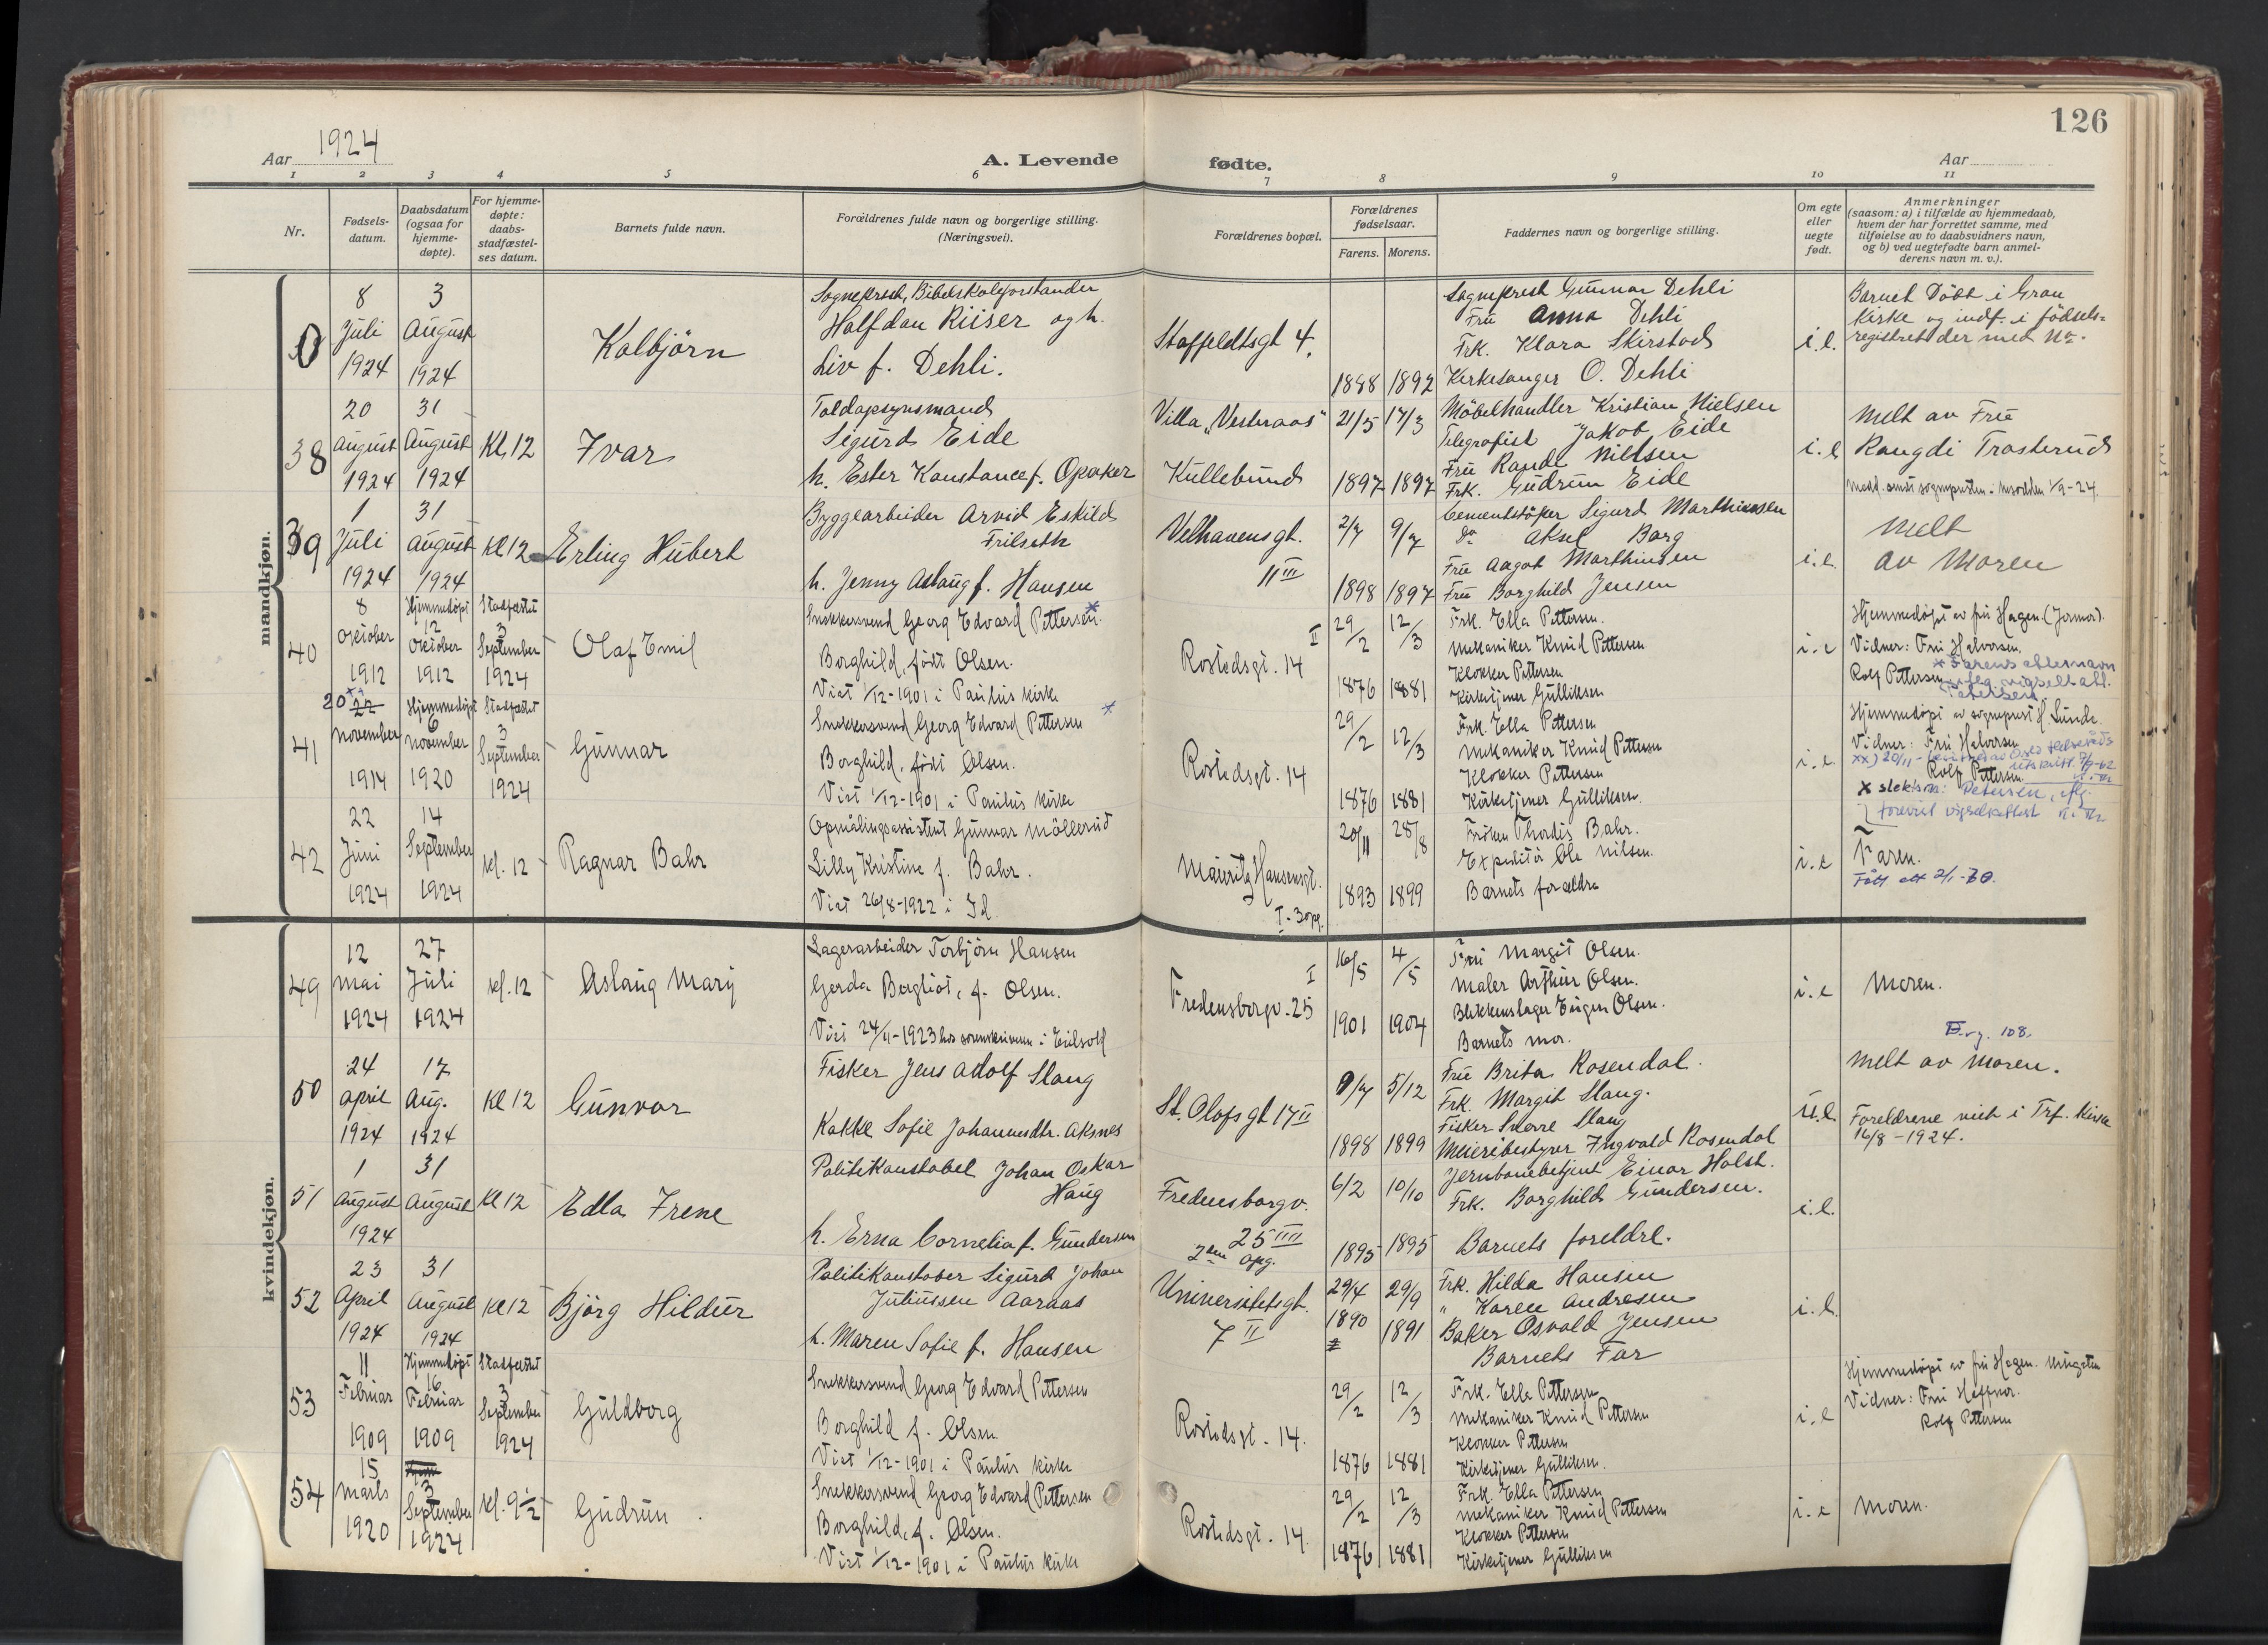 126
Aar 1924
A. Levende
fødte.
Aar
1 2 3 4 5 6 7 8 9 10 11
Nr.
Fødsels-
datum.
Daabsdatum
(ogsaa for
hjemme-
døpte).
For hjemme-
døpte:
daabs-
stadfæstel-
ses datum.
Barnets fulde navn.
Forældrenes fulde navn og borgerlige stilling.
(Næringsvei).
Forældrenes bopæl.
Forældrenes
fødselsaar.
Farens. Morens.
Faddernes navn og borgerlige stilling.
Om egte
eller
uegte
født.
Anmerkninger
(saasom: a) i tilfælde av hjemmedaab,
hvem der har forrettet samme, med
tilføielse av to daabsvidners navn,
og b) ved uegtefødte barn anmel-
derens navn m. v.).
mandkjøn.
0
8
Juli
1924
3
August
1924
Kolbjörn
Sogneprest, Bibelskoleforstander
Halfdan Riiser og h.
Liv f. Dehli.
Staffeldtsgt 4.
1888 1892
Sogneprest Gunnar Dehli
Fru Anna Dehli
Frk. Klara Skirstad
Kirkesanger O. Dehli
i.e.
Barnet Döbt i Gran
Kirke og indf. i födsels=
registret der med No.
38
20
August
1924
31
August
1924
Kl 12
Ivar
Toldopsynsmand
Sigurd Eide
h. Ester Konstance f. Opaker
Villa "Vesteraas"
Kullebund
21/5 17/3
1897 1897
Möbelhandler Kristian Nielsen
Telegrafist Jakob Eide
Fru Randi Nielsen
Frk. Gudrun Eide
i.e
Melt av Fru
Rangdi Trosterud
Medd. sendt sognepresten i Nesodden 1/9-24.
39
1
Juli
1924
31
August
1924
Kl 12
Erling Hubert
Byggearbeider Arvid Eskild
Frilseth
h. Jenny Aslaug f. Hansen
Velhavensgt.
11 III
2/7 9/7
1898 1897
Cementstöper Sigurd Marthinsen
do Aksel Borg
Fru Aagot Marthinsen
Fru Borghild Jensen
i.e.
Melt
av Moren
40
8
Oktober
1912
Hjemmedöpt
12
Oktober
1912
Stadfæstet
3
September
1924
Olaf Emil
Snekkersvend Georg Edvard Pettersen *
Borghild, födt Olsen.
Viet 1/12-1901 i Paulus kirke
II
Rostedsgt. 14
29/2 12/3
1876 1881
Frk. Ella Pettersen.
Mekaniker Knud Pettersen
Klokker Pettersen
Kirketjener Gulliksen
i.e
Hjemmedöpt av fru Hagen (Jormor).
Vidner: Fru Halvorsen.
* Farens etternavn
Rolf Pettersen iflg. vigselsatt.
Petersen.
41
20 xx 22
November
1914
Hjemmedöpt
6
November
1920
Stadfæstet
3
September
1924
Gunnar
Snekkersvend Georg Edvard Pettersen *
Borghild, födt Olsen.
Viet 1/12-1901 i Paulus kirke
Rostedsgt. 14
29/2 12/3
1876 1881
Frk. Ella Pettersen
Mekaniker Knud Pettersen
Klokker Pettersen
Kirketjener Gulliksen.
i.e.
Hjemmedöpt av sogneprest H. Sunde.
Vidner: Fru Halvorsen
xx) 20/11 - Oslo Helseråds
utskrift 7/9-62
Rolf Pettersen.
x slektsn: Petersen, iflg.
forevist vigselsattest
42
22
Juni
1924
14
September
1924
kl. 12
Ragnar Bahr
Opmålingsassistent Gunnar Möllerud
Lilly Kristine f. Bahr.
Viet 26/8-1922 i Id.
Mauritz Hansensgt.
I - 3 opg.
20/11 28/8
1893 1899
Fröken Thordis Bahr.
Expeditör Ole Nilsen.
Barnets forældre
i.e
Faren.
Fått att 2/1-70.
kvindekjøn.
49
12
Mai
1924
27
Juli
1924
kl. 12
Aslaug Mary
Lagerarbeider Torbjörn Hansen
Gerda Bergliot, f. Olsen.
Viet 24/11-1923 hos sorenskriveren i Eidsvold
I
Fredensborgv. 25
16/5 4/5
1901 1904
Fru Margit Olsen.
Maler Arthur Olsen.
Blikkenslager Eugen Olsen.
Barnets mor.
i.e
Moren.
50
24
April
1924
17
Aug.
1924
Kl 12
Gunvor
Fisker Jens Adolf Slang
Kokke Sofie Johannesdtr. Aksnes
St. Olafsgt 17 II
9/7 5/12
1898 1899
Fru Brita Rosendal.
Frk. Margit Slang.
Fisker Sverre Slang
Meieribestyrer Ingvald Rosendal
u.e.
F.rg. 108.
Melt av Moren.
Foreldrene viet i Trf. Kirke
16/8-1924.
51
1
August
1924
31
August
Kl 12
Edla Irene
Politikonstabel Johan Oskar
Haug
h. Erna Cornelia f. Gundersen
Fredensborgv.
25 III
2den opg.
6/2 10/10
1895 1895
Jernbanebetjent Einar Holst.
Frk. Borghild Gundersen.
Barnets foreldre.
i.e.
52
23
April
1924
31
August
1924
Kl 12
Björg Hildur
Politikonstober Sigurd Johan
Juliussen Aaraas
h. Maren Sofie f. Hansen
Universitetsgt.
7 II
29/4 29/9
1890 1891
Frk. Hilda Hansen
" Karen Andresen
Baker Osvald Jensen
Barnets Far
i.e.
53
11
Februar
1909
Hjemmedöpt
16
Februar
1909
Stadfæstet
3
September
1924
Guldborg
Snekkersvend Georg Edvard Pettersen
Borghild f. Olsen.
Viet 1/12-1901 i Paulus kirke
Rostedsgt. 14.
29/2 12/3
1876 1881
Frk. Ella Pettersen
Mekaniker Knud Pettersen
Klokker Pettersen
Kirketjener Gulliksen.
i.e
Hjemmedöpt av fru Hagen.
Vidner: Fru Haffner.
Rolf Pettersen
54
15
Marts
1920
3
September
1924
kl. 9 1/2
Gudrun.
Snekkersvend Georg Edvard Pettersen
Borghild, f. Olsen.
Viet 1/12-1901 i Paulus kirke
Rostedsgt. 14
29/2 12/3
1876 1881
Frk. Ella Pettersen
Mekaniker Knud Pettersen
Klokker Pettersen
Kirketjener Gulliksen
i.e
Moren.